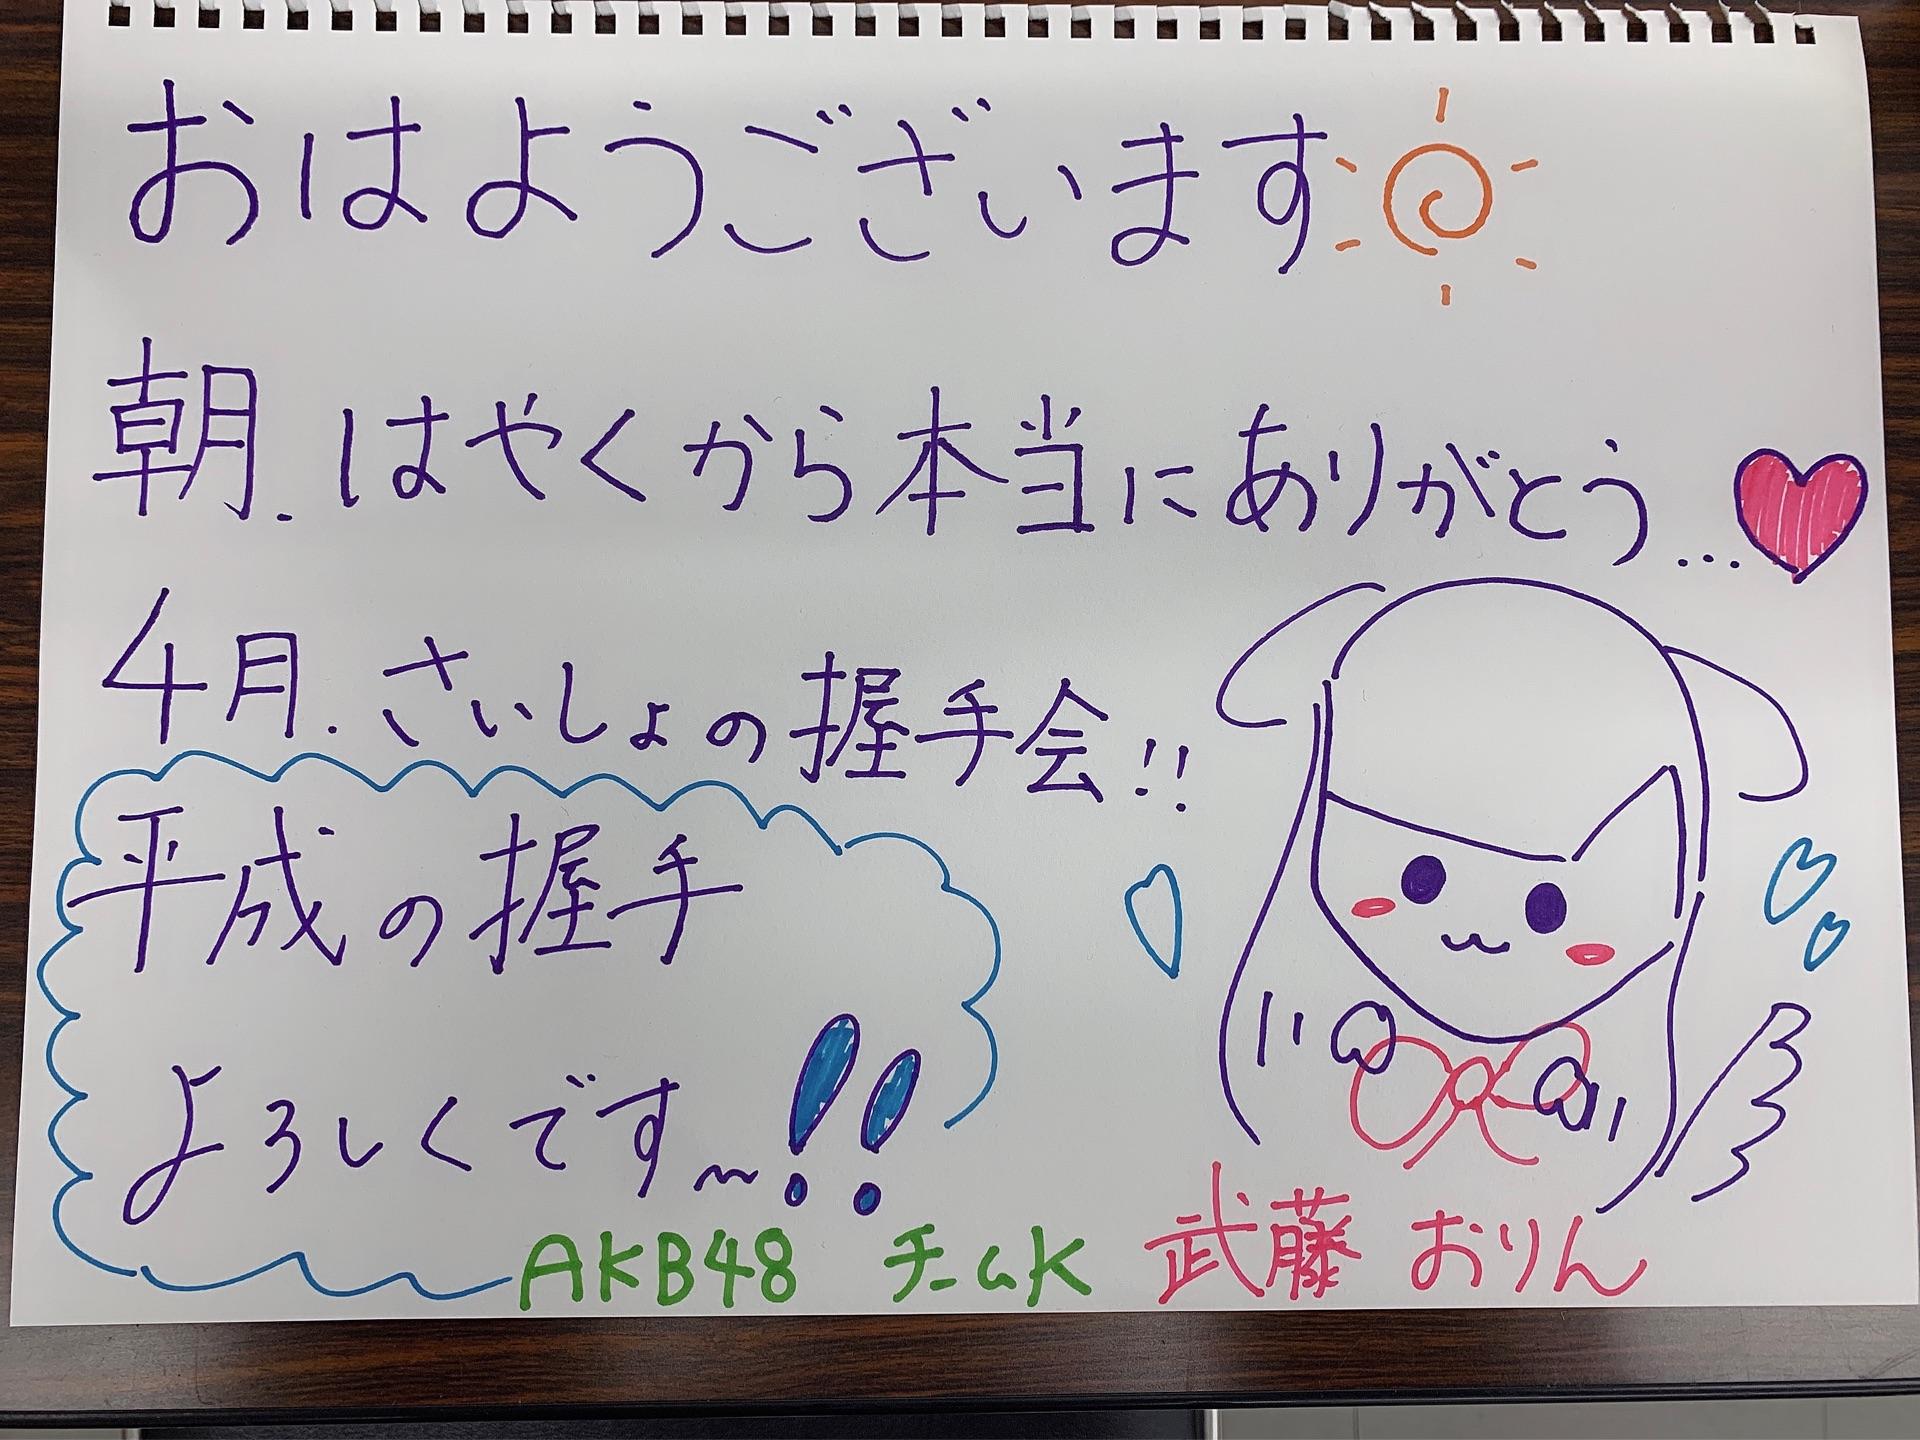 おはようございます
朝.はやくから本当にありがとう...
4月.さいしょの握手会!!
平成の握手
よろしくです〜!!
AKB48 チームK 武藤 おりん